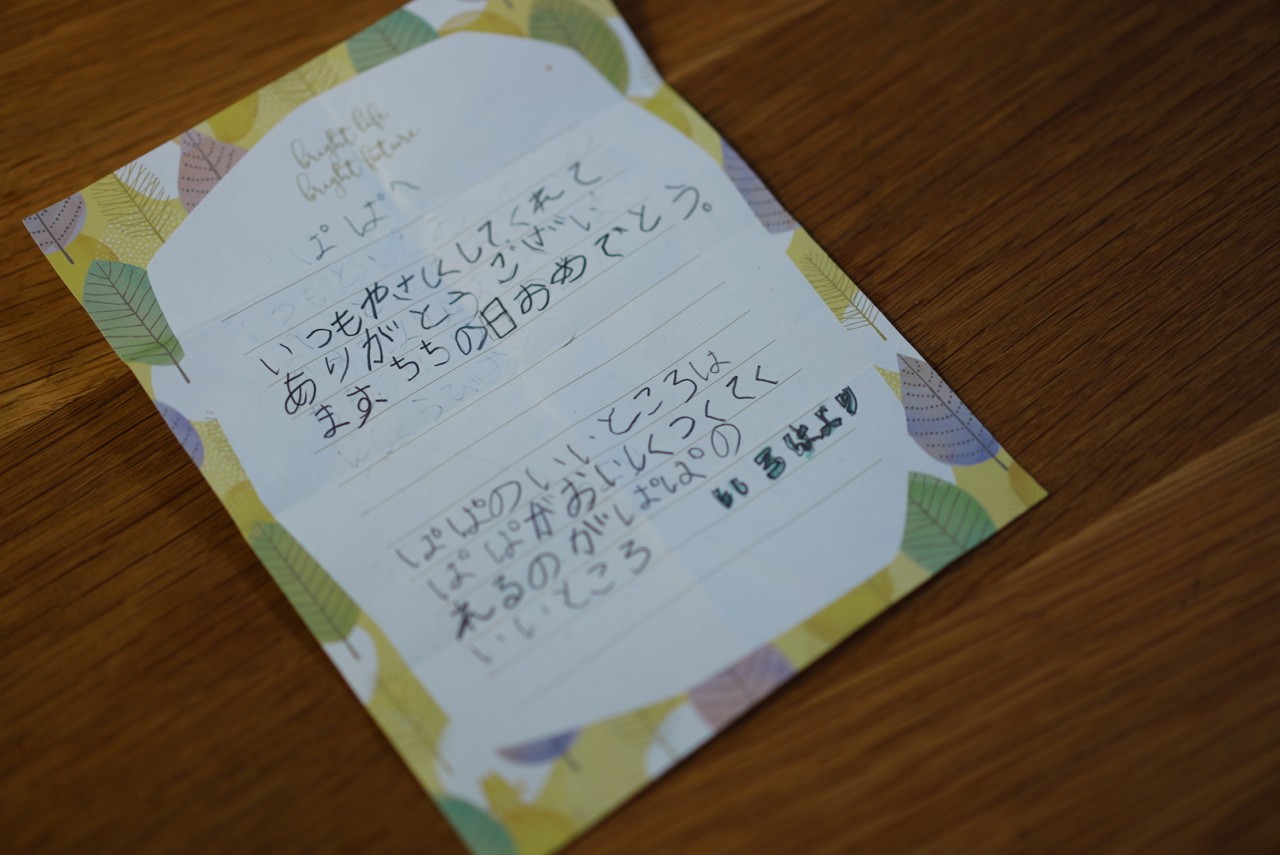 bright life
bright future
ぱぱへ
いつもやさしくしてくれて
ありがとうござい
ます、ちちの日おめでとう。
ぱぱのいいところは
ぱぱがおいしくつくてく
れるのがぱぱの
いいところ
いろはより